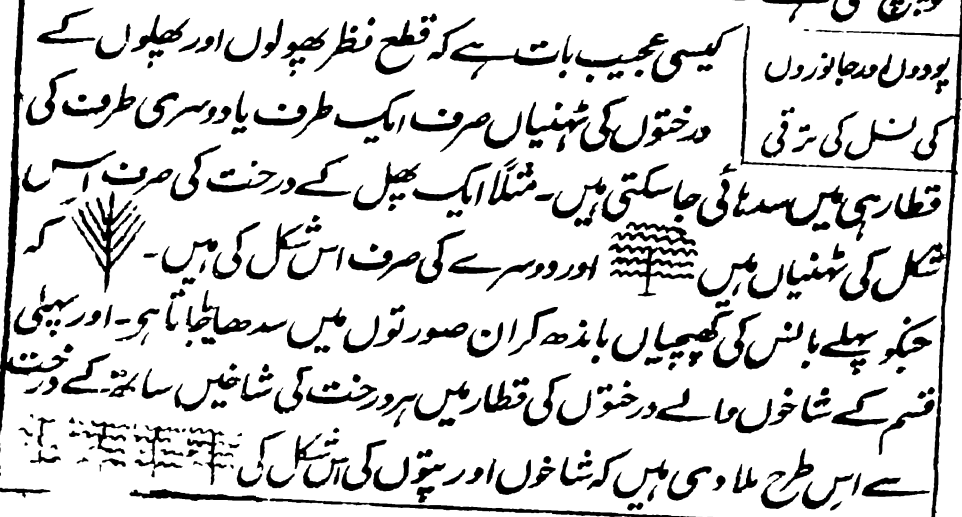 پودوں اور جانوروں
کی نسل کی ترقی
کیسی عجیب بات ہے کہ قطع نظر پھولوں اور پھلوں کے
درختوں کی ٹہنیاں صرف ایک طرف یا دوسری طرف کی
قطار ہی میں سدہائی جاسکتی ہیں۔ مثلاً ایک پھل کے درخت کی صرف اس
شکل کی ٹہنیاں ہیں اور دوسرے کی صرف اس شکل کی ہیں۔ کہ
جنکو پہلے بانس کی کھپچیاں باندھ کر ان صورتوں میں سدھایا جاتا ہی۔ اور پہلی
قسم کے شاخوں والے درختوں کی قطار میں ہر درخت کی شاخیں ساتھ کے درخت
سے اس طرح ملا دی ہیں کہ شاخوں اور پتوں کی اس شکل کی